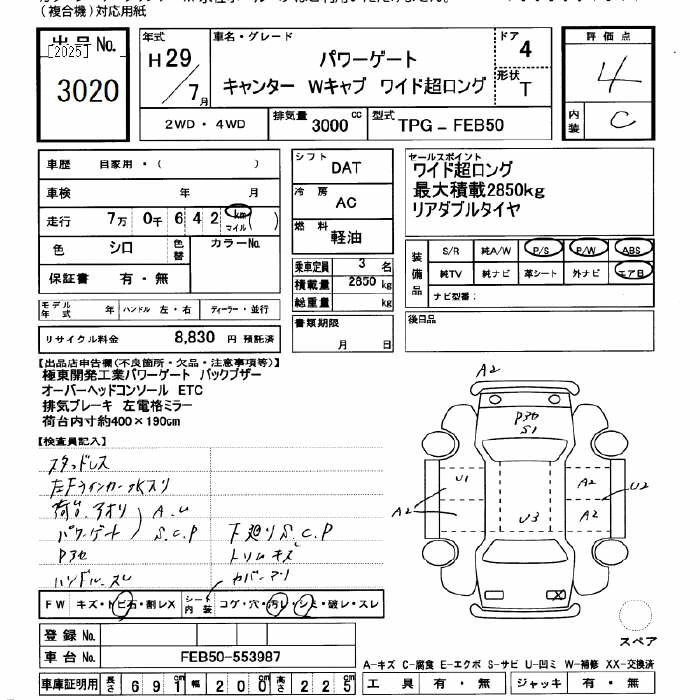 （複合機）対応用紙
出品No.
[2025]
3020
年式
H29/7月
車名・グレード
パワーゲート
キャンター Wキャブ ワイド超ロング
ドア 4
形状 T
評価点
4
内装 C
2WD・4WD
排気量 3000 cc
型式 TPG-FEB50
車歴 自家用・（ ）
車検 年 月
走行 7万 0千 6 4 2 km マイル ( )
色 シロ 色替 カラーNo.
保証書 有・無
モデル年式 年 ハンドル 左・右 ディーラー・並行
リサイクル料金 8,830 円 預託済
シフト DAT
冷房 AC
燃料 軽油
乗車定員 3 名
積載量 2850 kg
総重量 kg
書類期限
月 日
セールスポイント
ワイド超ロング
最大積載2850kg
リアダブルタイヤ
装備品
S/R 純A/W P/S P/W ABS
純TV 純ナビ 革シート 外ナビ エアB
ナビ型番：
後日品
【出品店申告欄(不良箇所・欠品・注意事項等)】
極東開発工業パワーゲート バックブザー
オーバーヘッドコンソール ETC
排気ブレーキ 左電格ミラー
荷台内寸約400×190cm
【検査員記入】
スタッドレス
左Fウインカー水入り
荷台.アオリ A.U
パワーゲート S.C.P 下廻りS.C.P
Pアセ トリムキズ
ハンドル.スレ カバー
FW キズ・トビ石・割レX シート内装 コゲ・穴・汚レ・シミ・破レ・スレ
登録No.
車台No. FEB50-553987
車庫証明用 長さ 691cm 幅 200cm 高さ 225cm
A2
Pアセ
S1
U1
A2
U2
A2
A2
U3
X
スペア
A-キズ C-腐食 E-エクボ S-サビ U-凹ミ W-補修 XX-交換済
工具 有・無 ジャッキ 有・無